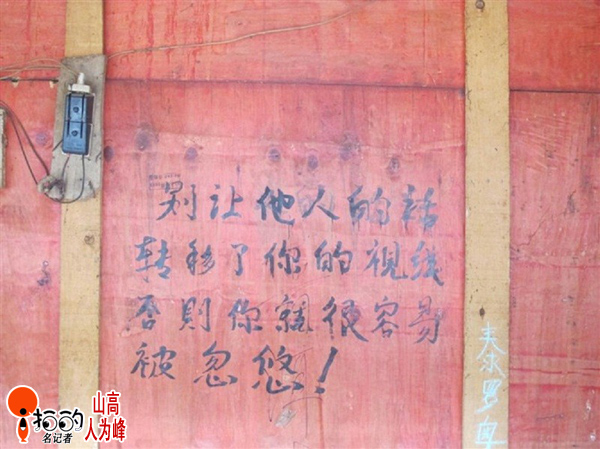 别让他人的话
转移了你的视线
否則你就很容易
被忽悠！
泰罗
i拍的
名记者
山高
人为峰